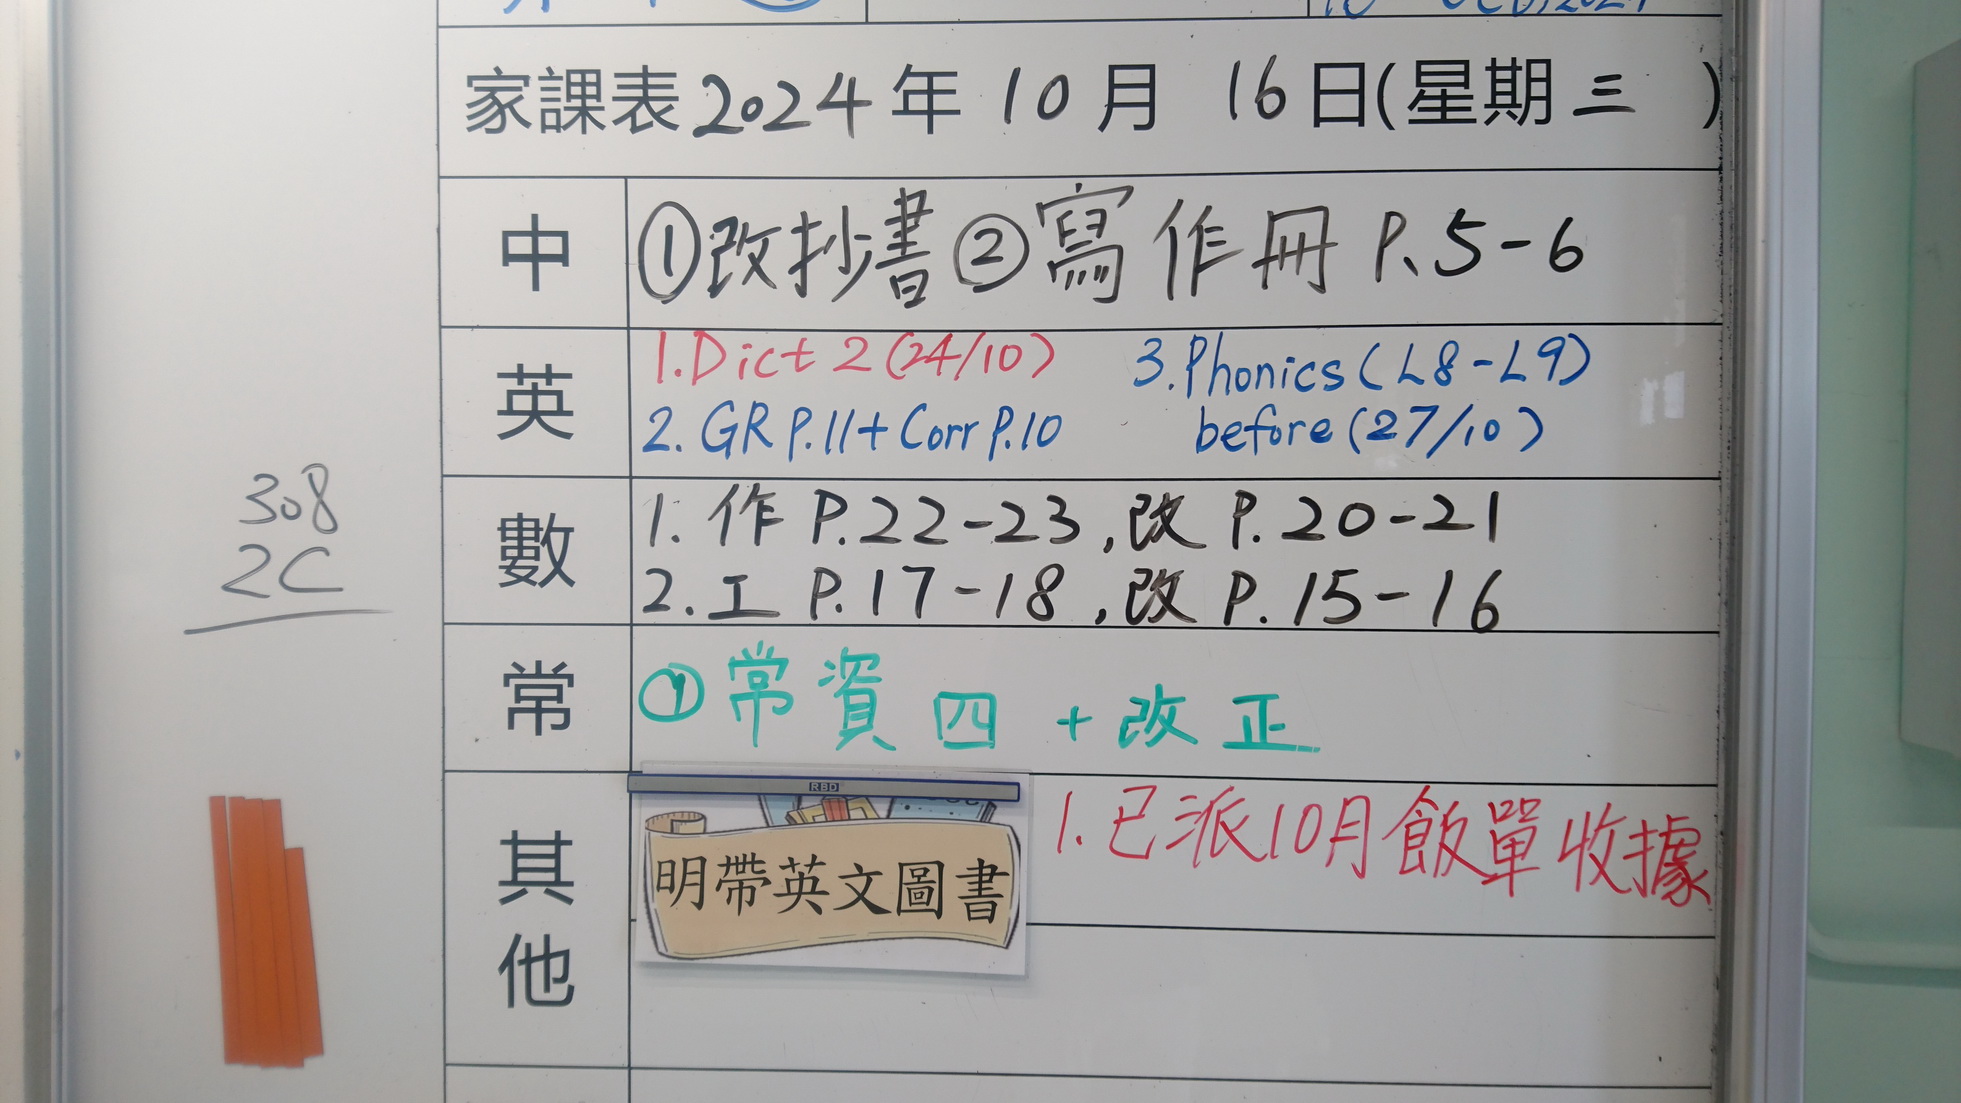 家課表 2024 年 10 月 16 日(星期 三 )
中 ①改抄書 ②寫作冊 P.5-6
英 1.Dict 2 (24/10) 3.Phonics (L8-L9)
2. GR P.11 + Corr P.10 before (27/10)
數 1. 作 P.22-23,改 P.20-21
2. 工 P.17-18,改 P.15-16
常 ① 常資四 + 改正
其他 1. 已派10月飯單收據
RBD
明帶英文圖書
308
2C